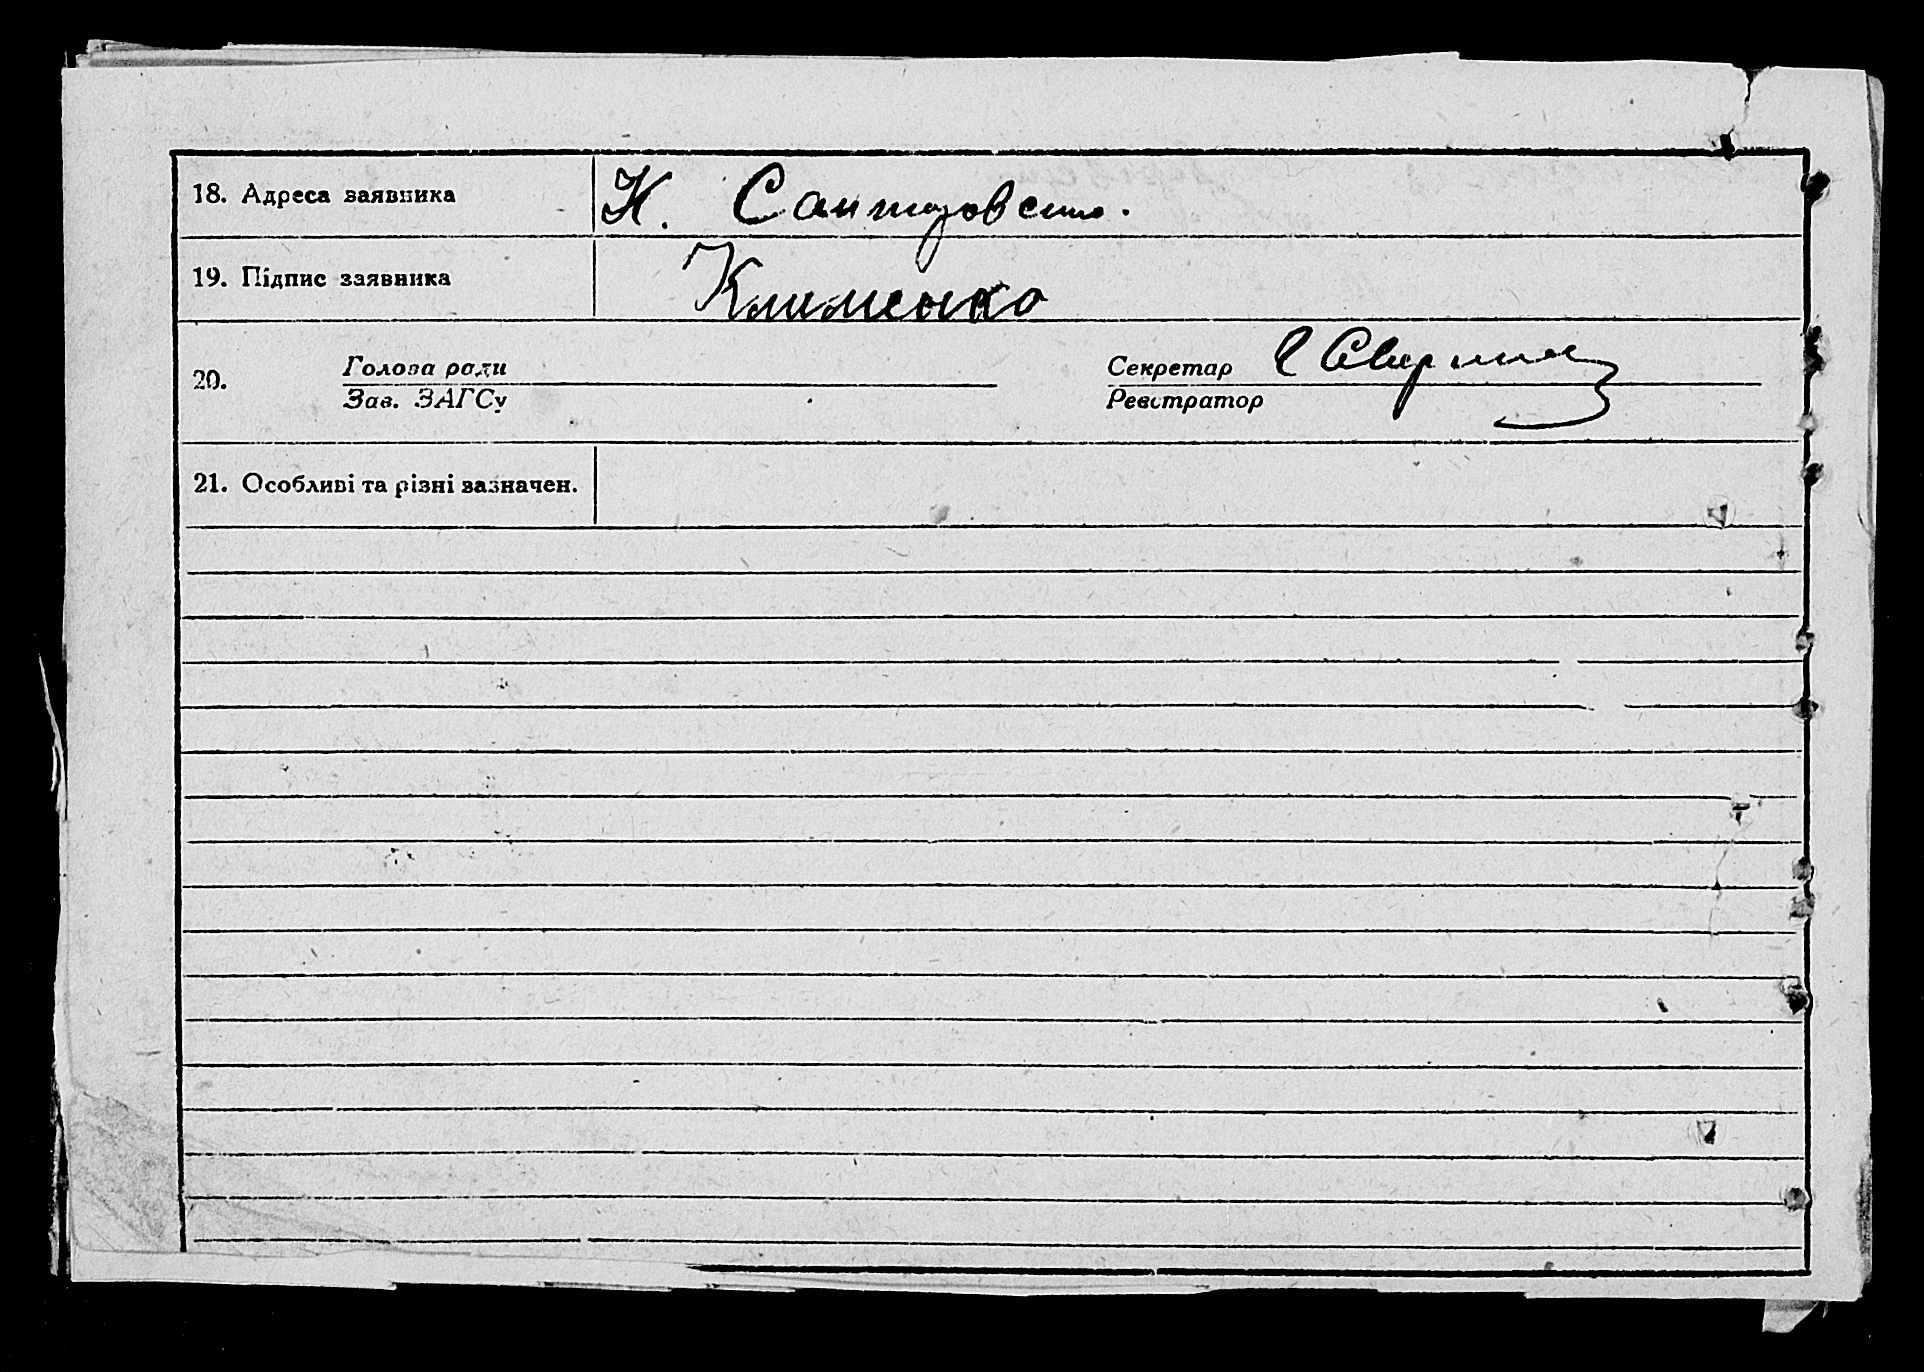 18. Адреса заявника Н. Сантаровська.
19. Підпис заявника Клименко
20. Голова ради Секретар
Зав. ЗАГСу Реєстратор
21. Особливі та різні зазначен.